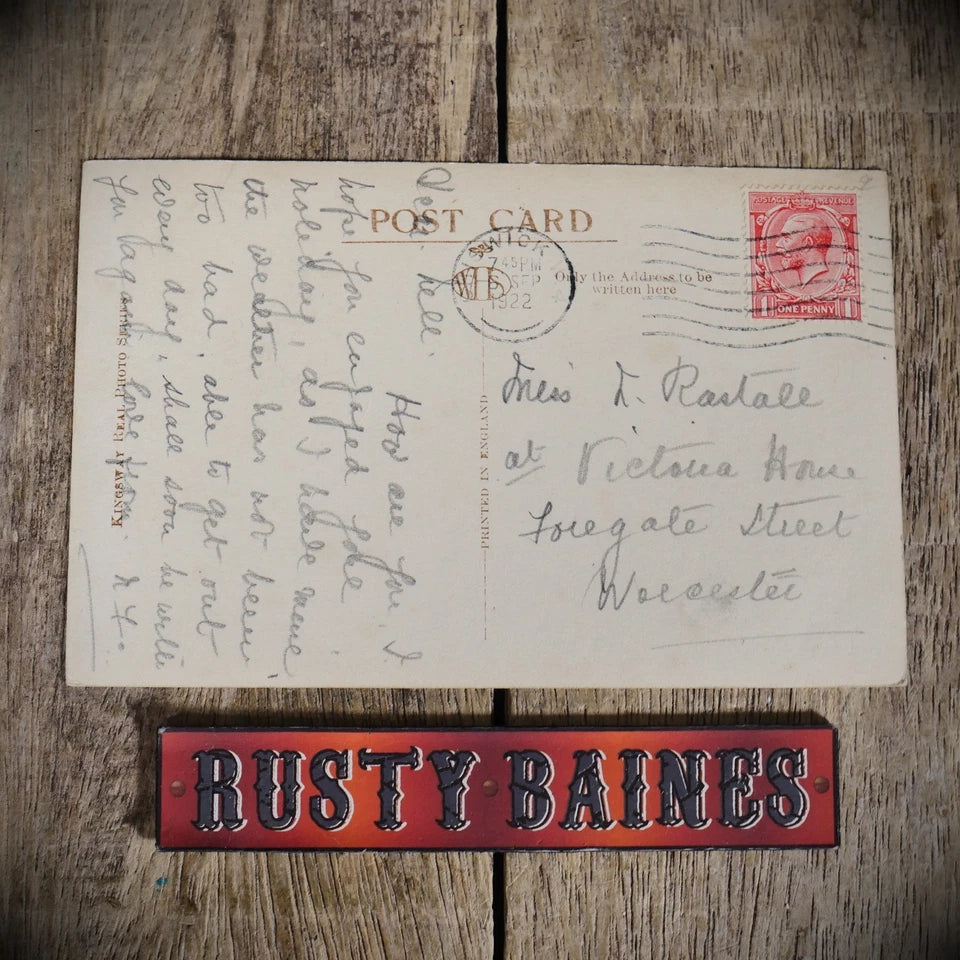 POST CARD
NTON
7 45 PM
SEP
1922
WHS
Only the Address to be
written here
POSTAGE REVENUE
1 ONE PENNY 1
Miss D. Rastall
at Victoria House
Foregate Street
Worcester
PRINTED IN ENGLAND
KINGSWAY REAL PHOTO SERIES
Dear Nell.
How are you. I
hope you enjoyed your
holiday, as I have mine
the weather has not been
too bad, able to get out
every day, shall soon be with
you again. love from
RUSTY BAINES